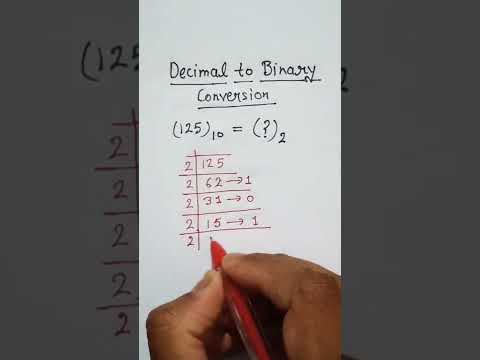 Decimal to Binary
Conversion
(125)₁₀ = (?)₂
2 | 125
2 | 62 → 1
2 | 31 → 0
2 | 15 → 1
2 |